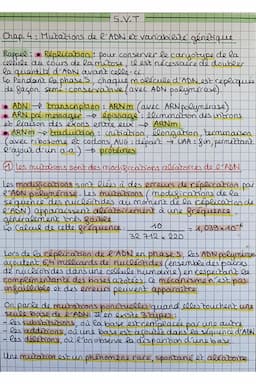 S.V.T
Chap. 4 : Mutations de l'ADN et variabilité génétique
Rappel : • Réplication : pour conserver le caryotype de la
cellule au cours de la mitose, il est nécessaire de doubler
la quantité d'ADN avant celle-ci.
↳ Pendant la phase S, chaque molécule d'ADN est répliquée
de façon semi-conservative (avec ADN polymérase)
• ADN → transcription : ARNm (avec ARN polymérase)
• ARN pré-messager → épissage : élimination des introns
et liaison des exons entre eux → ARNm
• ARNm → traduction : initiation, élongation, terminaison
(avec ribosome et codons, AUG : départ → UAA : fin, permettent
l'ajout d'un a.a.) → protéines
① Les mutations sont des modifications aléatoires de l'ADN
Les modifications sont liées à des erreurs de réplication par
l'ADN polymérase. Les mutations (modifications de la
séquence des nucléotides au moment de la réplication de
l'ADN) apparaissent aléatoirement à une fréquence
généralement très faible
↳ Calcul de cette fréquence : 10
Lors de la réplication de l'ADN en phase S, les ADN polymérases
ajoutent 6,4 milliards de nucléotides (ensemble des paires
de nucléotides dans une cellule humaine) en respectant la
complémentarité des bases azotées. Ce mécanisme n'est pas
infaillible et des erreurs peuvent apparaître.
On parle de mutations ponctuelles quand elles touchent une
seule base de l'ADN. Il en existe 3 types :
- les substitutions, où la base est remplacée par une autre
- les additions, où une base est ajoutée dans la séquence d'ADN
- les délétions, où l'on observe la disparition d'une base.
Une mutation est un phénomène rare, spontané et aléatoire.